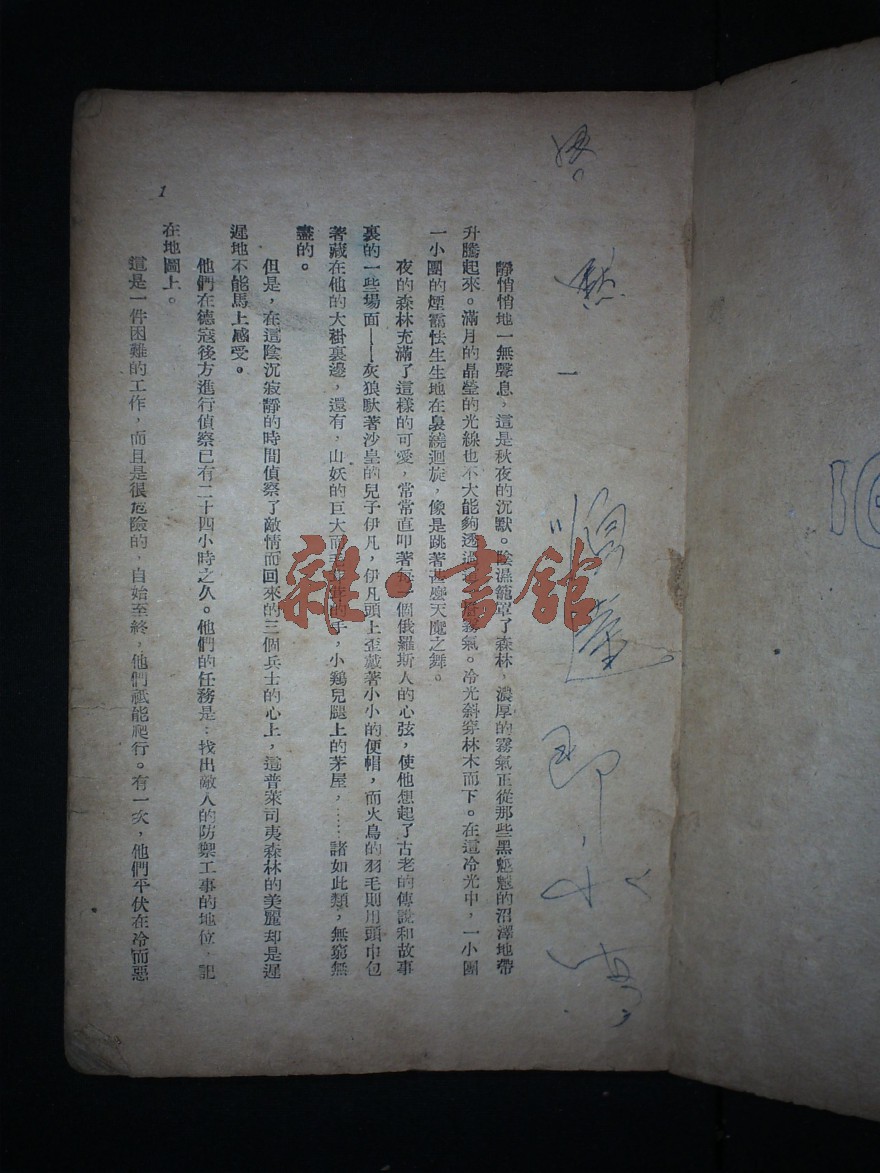 一
靜悄悄地一無聲息，這是秋夜的沉默。陰濕籠罩了森林，濃厚的霧氣正從那些黑魆魆的沼澤地帶
升騰起來。滿月的晶瑩的光線也不大能夠透過霧氣。冷光斜穿林木而下。在這冷光中，一小團
一小團的煙霭怯生生地在裊繞迴旋，像是跳著甚麼天魔之舞。
夜的森林充滿了這樣的可愛，常常直叩著每一個俄羅斯人的心弦，使他想起了古老的傳說和故事
裏的一些場面——灰狼馱著沙皇的兒子伊凡，伊凡頭上歪戴著小小的便帽，而火鳥的羽毛則用頭巾包
著藏在他的大褂裏邊，還有，山妖的巨大而毛的手，小鷄兒腿上的茅屋，……諸如此類，無窮無
盡的。
但是，在這陰沉寂靜的時間偵察了敵情而回來的三個兵士的心上，這普萊司夷森林的美麗却是遲
遲地不能馬上感受。
他們在德寇後方進行偵察已有二十四小時之久。他們的任務是：找出敵人的防禦工事的地位，記
在地圖上。
這是一件困難的工作，而且是很危險的，自始至終，他們祇能爬行。有一次，他們平伏在冷而惡
1
雜·書舘